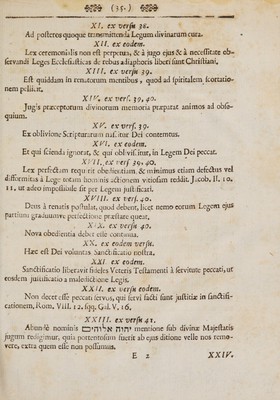 (35.)
XI. ex versu 38.
Ad posteros quoque transmittenda Legum divinarum cura.
XII. ex eodem.
Lex ceremonialis non est perpetua, & à jugo ejus & à necessitate ob-
servandi Leges Ecclesiasticas de rebus adiaphoris liberi sunt Christiani.
XIII. ex versu 39.
Est quiddam in renatorum mentibus, quod ad spiritalem scortatio-
nem pellicit.
XIV. ex vers. 39. 40.
Jugis præceptorum divinorum memoria præparat animos ad obse-
quium.
XV. ex vers. 39.
Ex oblivione Scripturarum nascitur Dei contemtus.
XVI. ex eodem.
Et qui scienda ignorat, & qui obliviscitur, in Legem Dei peccat.
XVII. ex vers. 39. 40.
Lex perfectam requirit obedientiam, & minimus etiam defectus vel
difformitas à Lege totam hominis actionem vitiosam reddit. Jacob. II. 10.
11. ut adeo impossibile sit per Legem justificari.
XVIII. ex vers. 40.
Deus à renatis postulat, quod debent, licet nemo eorum Legem ejus
partium graduumve perfectione præstare queat.
XIX. ex versu 40.
Nova obedientia debet esse continua.
XX. ex eodem versu.
Hæc est Dei voluntas Sanctificatio nostra.
XXI. ex eodem
Sanctificatio liberavit fideles Veteris Testamenti à servitute peccati, ut
eosdem justificatio a maledictione Legis.
XXII. ex versu eodem.
Non decet esse peccati servos, qui servi facti sunt justitiæ in sanctifi-
cationem, Rom. VIII. 12. sqq. Gal. V. 16.
XXIII. ex versu 41.
nominis יהוה אלהיכם mentione sub divinæ Majestatis
jugum redigimur, quia portentosum fuerit ab ejus ditione velle nos remo-
vere, extra quem esse non possumus.
E 2 XXIV.